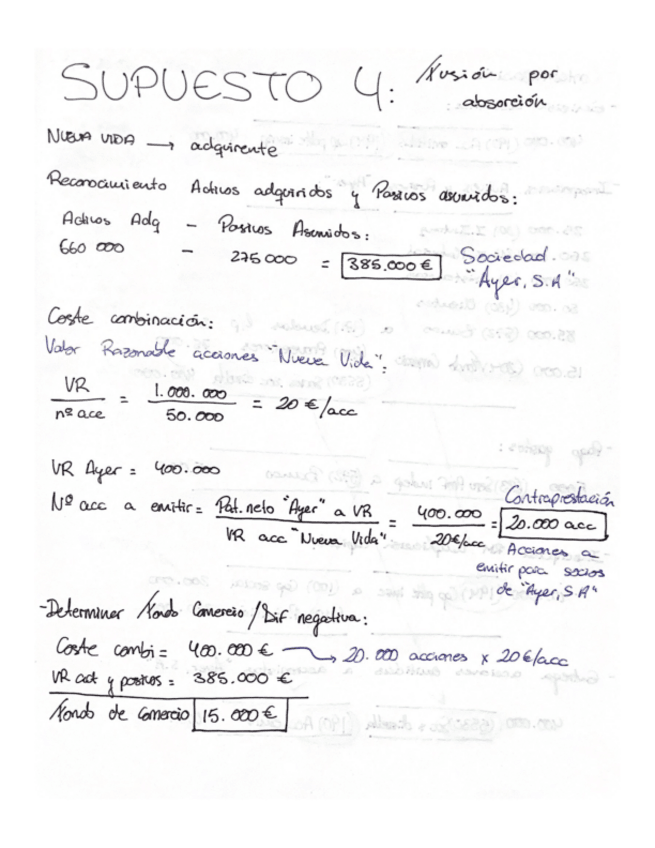 SUPUESTO 4: Fusión por
absorción
NUEVA VIDA → adquirente
Reconocimiento Activos adquiridos y Pasivos asumidos:
Activos Adq - Pasivos Asumidos:
660 000 - 275 000 = 385.000 €
Sociedad
"Ayer, S.A"
Coste combinación:
Valor Razonable acciones "Nueva Vida":
VR / nº acc = 1.000.000 / 50.000 = 20 €/acc
VR Ayer = 400.000
Nº acc a emitir = Pat. neto "Ayer" a VR / VR acc "Nueva Vida" = 400.000 / 20€/acc = 20.000 acc
Contraprestación
Acciones a
emitir para socios
de "Ayer, S.A"
-Determinar Fondo Comercio / Dif negativa:
Coste combi = 400.000 € → 20.000 acciones x 20€/acc
VR act y pasivos = 385.000 €
Fondo de Comercio 15.000 €